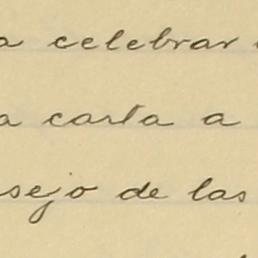 a celebrar
a carta a
sejo de las